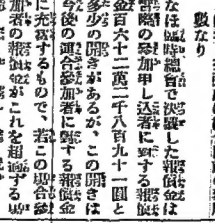 數なり
なほ臨時總會で決議した報償金
當際の參加申し込者に對する報償
金百六十二萬二千八百九十一圓と
多少の開きがあるが、この開きは
今後の運合參加者に對する報償金
に充當するもので、若この運合參
加者の報償金がこれを超過する